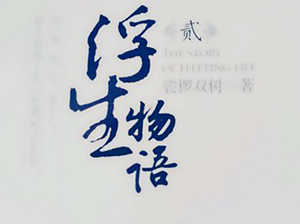 浮生物语
贰
THE STORY
OF FLEETING LIFE
裟椤双树 著